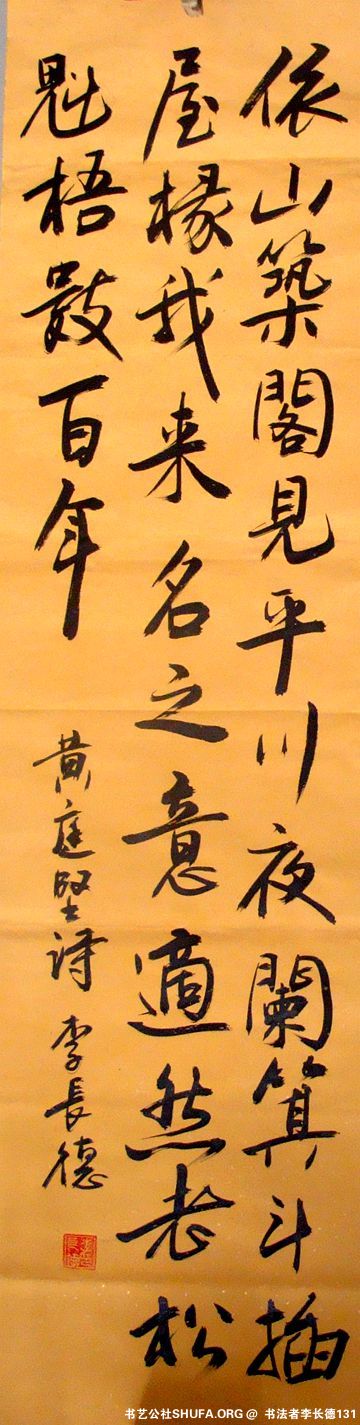 依山築閣見平川夜闌箕斗插
屋椽我来名之意適然老松
魁梧數百年
黄庭堅诗 李長德
书艺公社SHUFA.ORG @ 书法者李长德131